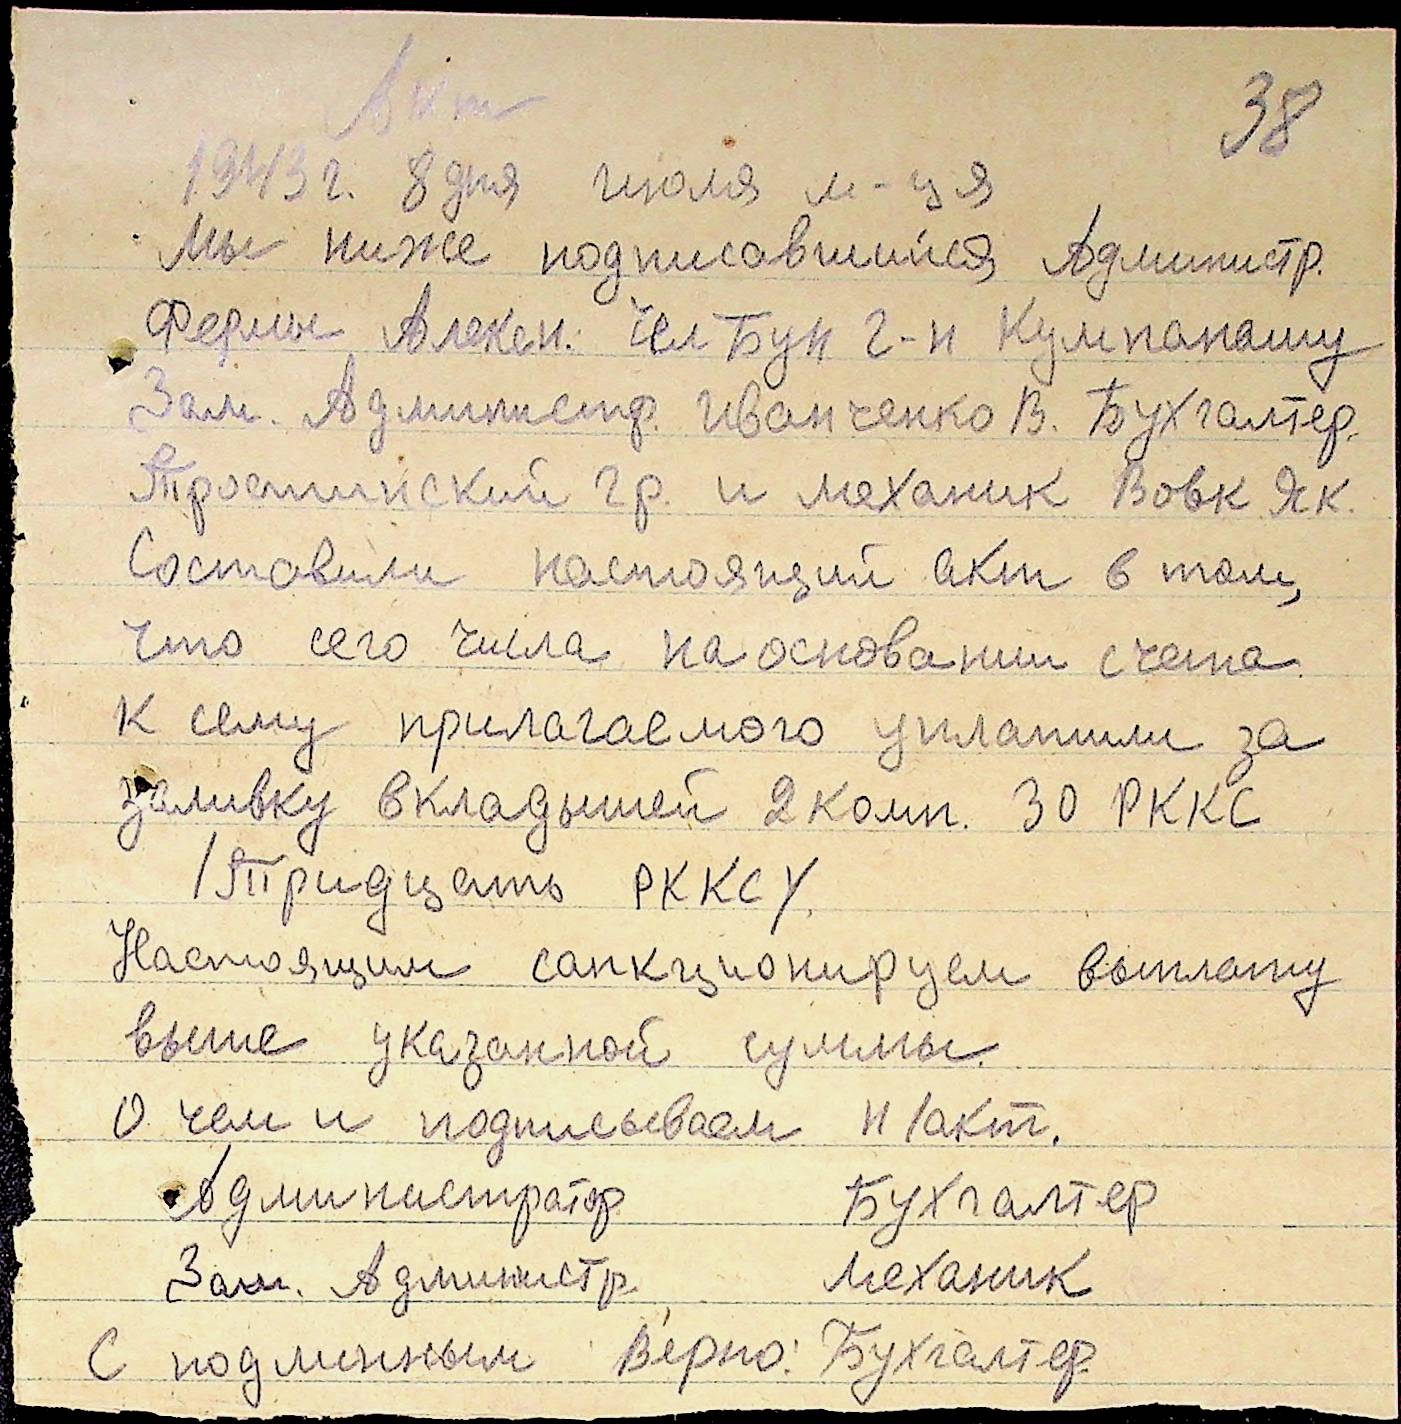 Акт
38
1943 г. 8 дня июля м-ця
Мы ниже подписавшийся Администр.
Фермы Алексн. Чел Бун г-н Кумпанашу
Зам. Администр. Иванченко В. Бухгалтер.
Тростинский Гр. и механик Вовк Як.
Составили настоящий акт в том,
что сего числа на основании счета
к сему прилагаемого уплатили за
заливку вкладышей 2 комп. 30 РККС
/Тридцать РККС/.
Настоящим санкционируем выплату
выше указанной суммы.
О чем и подписываем н/акт.
Администратор Бухгалтер
Зам. Администр. механик
С подлинным Верно: Бухгалтер